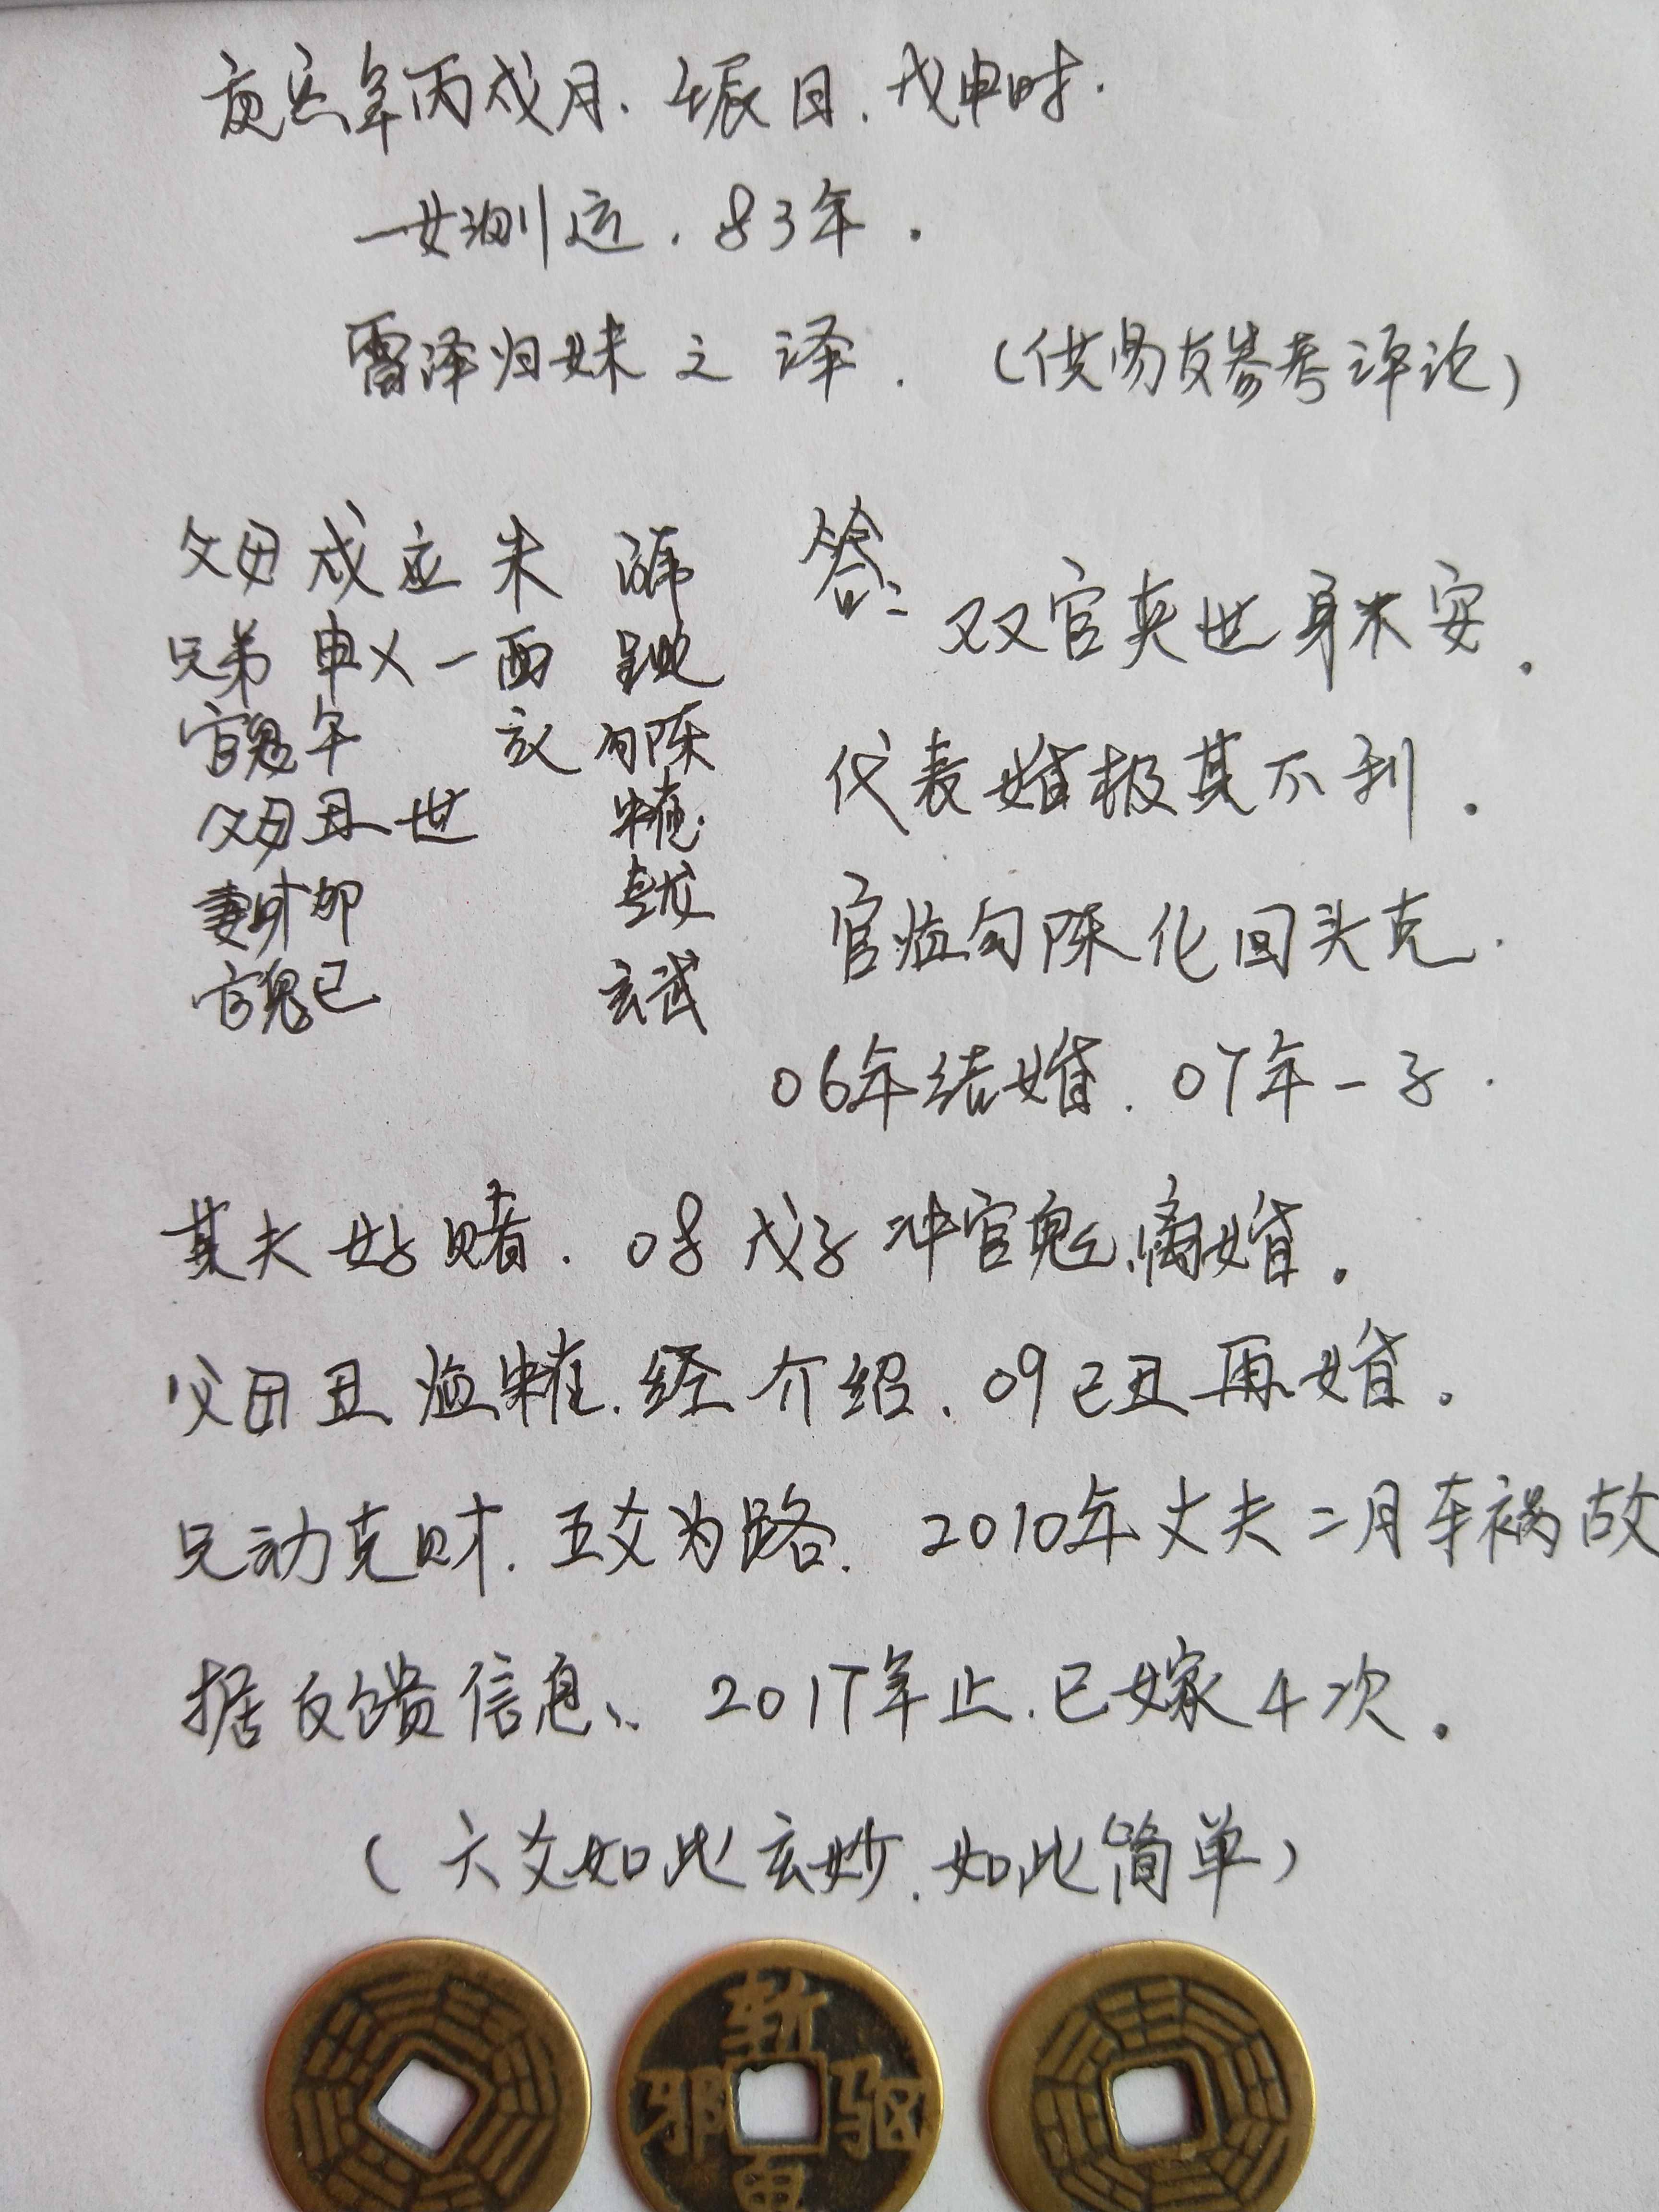 庚寅年丙戌月.壬辰日.戊申时.
一女测运.83年.
雷泽归妹之译.(供易友参考评论)
父母戌应未
兄弟申乂一酉
官鬼午亥勾陈
父母丑一世
妻财卯
官鬼巳玄武
答:双官夹世身不安.
代表婚极其不利.
官临勾陈化回头克.
06年结婚.07年一子.
其夫好赌.08戊子冲官鬼、离婚.
父母丑临.经介绍.09己丑再婚.
兄动克财.五爻为路.2010年丈夫二月车祸故
据反馈信息、2017年止.已嫁4次.
(六爻如此玄妙.如此简单)
斩
邪 驱
鬼